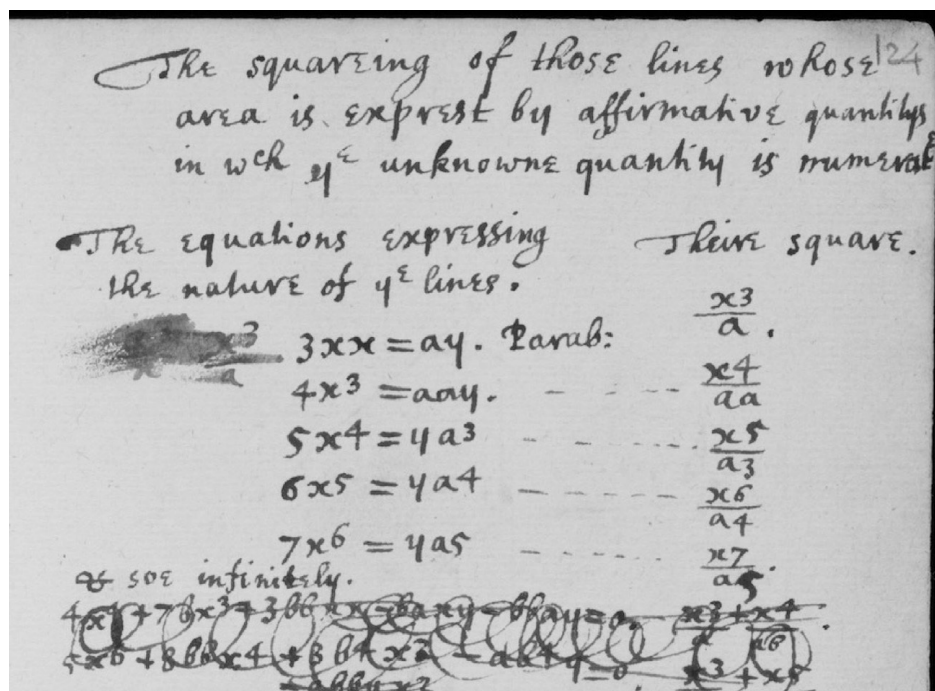 124
The squareing of those lines whose
area is exprest by affirmative quantitys
in wch ye unknowne quantity is numerate
The equations expressing Theire square.
the nature of ye lines.
x3/a 3xx=ay. Parab: x3/a.
4x3=aay. - - - - x4/aa
5x4=ya3 - - - - - x5/a3
6x5=ya4 - - - - - x6/a4
7x6=ya5 - - - - - x7/a5.
& soe infinitely.